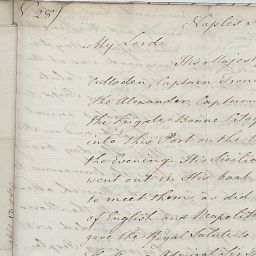 No 28/
Naples
My Lord
His Majesty
Captain
the Alexander, Captain
the Frigate Bonne Cito
into this Port on the
the Evening. His Sicilia
went out in His boat
to meet them, as did
of English and Neapolit
gave the Royal Salute to